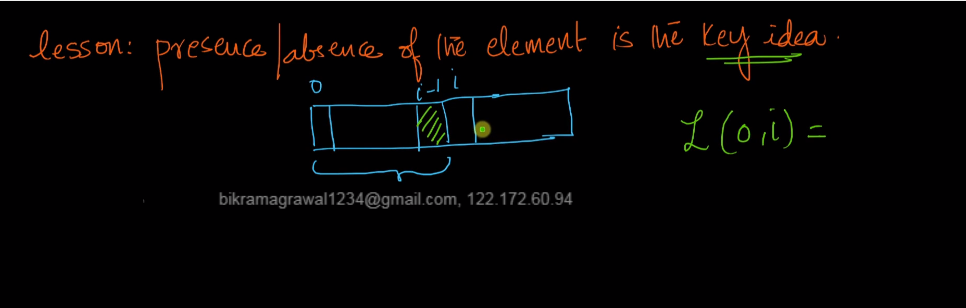 lesson: presence/absence of the element is the key idea.
0 i-1 i
L(0,i) =
bikramagrawal1234@gmail.com, 122.172.60.94